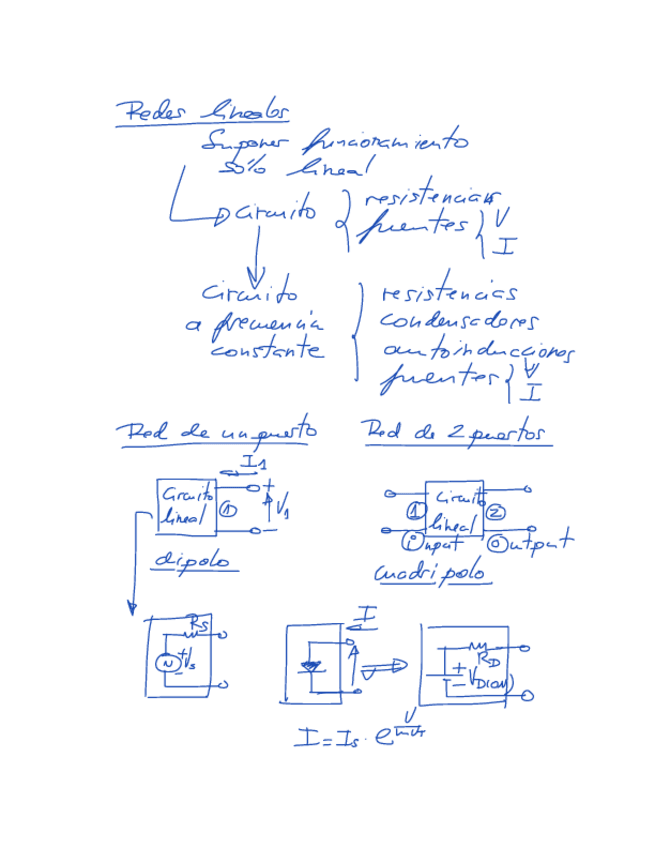 Redes lineales
Suponer funcionamiento
sólo lineal
Circuito { resistencias
fuentes { V
I
Circuito
a frecuencia
constante
resistencias
condensadores
autoinducciones
fuentes } V
I
Red de un puerto
Red de 2 puertos
I1
Circuito
lineal
1
+
V1
-
dipolo
Circuito
lineal
1
2
input
output
Cuadripolo
RS
+
Vs
-
I
V
RD
+
- VD(on)
I = Is · e